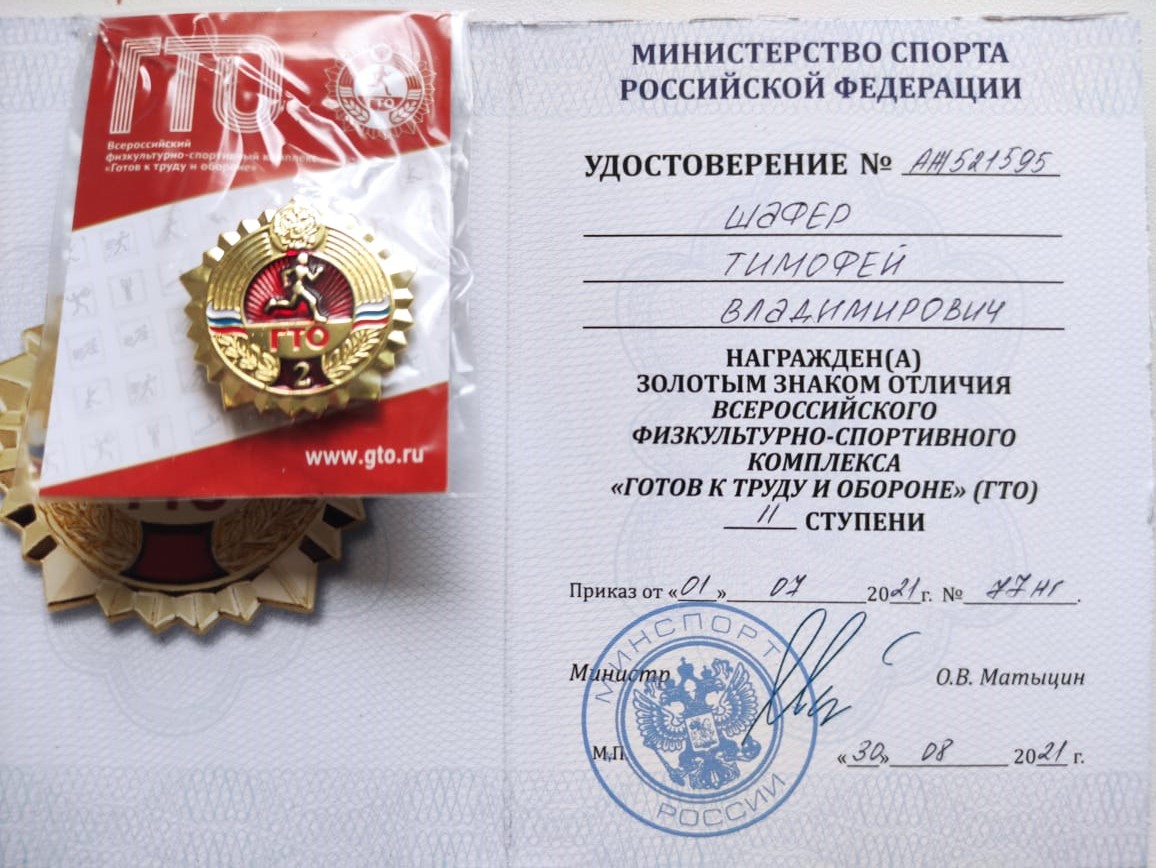 ГТО
Всероссийский
физкультурно-спортивный комплекс
«Готов к труду и обороне»
ГТО
ГТО
2
www.gto.ru
ГТО
МИНИСТЕРСТВО СПОРТА
РОССИЙСКОЙ ФЕДЕРАЦИИ
УДОСТОВЕРЕНИЕ № АЖ521595
ШАФЕР
ТИМОФЕЙ
ВЛАДИМИРОВИЧ
НАГРАЖДЕН(А)
ЗОЛОТЫМ ЗНАКОМ ОТЛИЧИЯ
ВСЕРОССИЙСКОГО
ФИЗКУЛЬТУРНО-СПОРТИВНОГО
КОМПЛЕКСА
«ГОТОВ К ТРУДУ И ОБОРОНЕ» (ГТО)
II СТУПЕНИ
Приказ от «01» 07 2021 г. № 77нг.
Министр О.В. Матыцин
МИНСПОРТ
РОССИИ
М.П
«30» 08 2021 г.